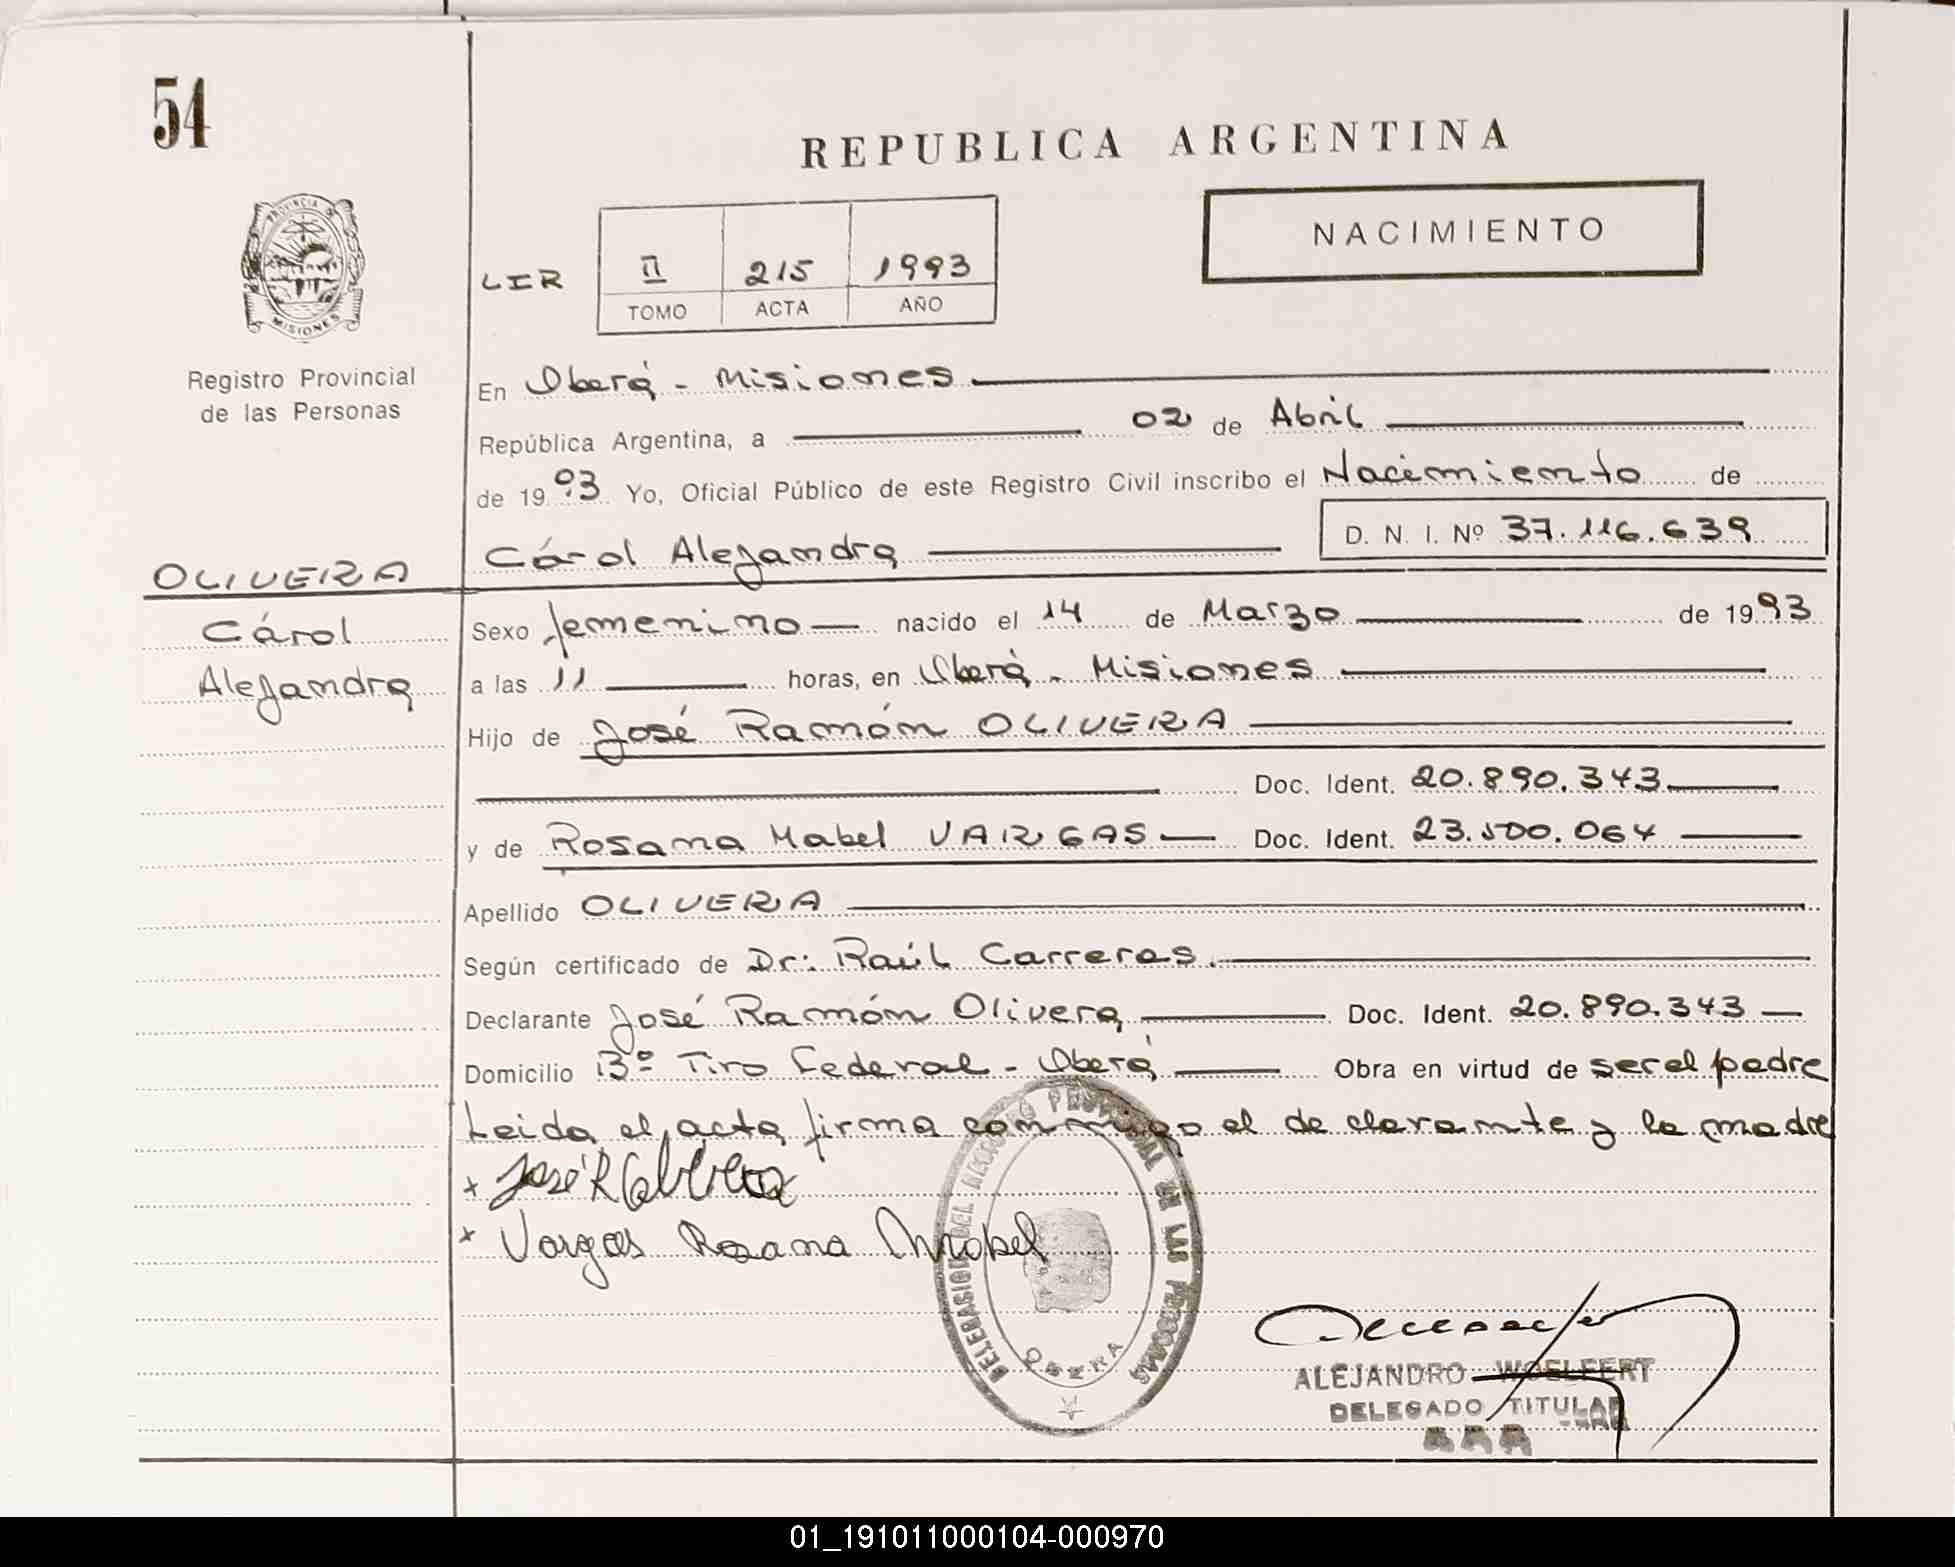 54
REPUBLICA ARGENTINA
PROVINCIA DE
MISIONES
NACIMIENTO
LIR II 215 1993
TOMO ACTA AÑO
Registro Provincial
de las Personas
En Oberá - Misiones
República Argentina, a 02 de Abril
de 19 93 Yo, Oficial Público de este Registro Civil inscribo el Nacimiento de
D. N. I. Nº 37.116.639
Cárol Alejandra
OLIVERA
Cárol
Alejandra
Sexo femenino nacido el 14 de Marzo de 1993
a las 11 horas, en Oberá - Misiones
Hijo de José Ramón OLIVERA
Doc. Ident. 20.890.343
y de Rosana Mabel VARGAS Doc. Ident. 23.500.064
Apellido OLIVERA
Según certificado de Dr: Raúl Carreras.
Declarante José Ramón Olivera Doc. Ident. 20.890.343
Domicilio Bº Tiro Federal - Oberá Obra en virtud de ser el padre
Leida el acta firma conmigo el declarante y la madre
x José R Olivera
x Vargas Rosana Mabel
DELEGACION DEL REGISTRO PROVINCIAL DE LAS PERSONAS
OBERA
ALEJANDRO WOELFERT
DELEGADO TITULAR
01_191011000104-000970